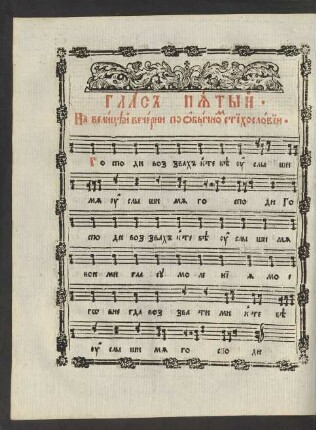 ГЛАСЪ ПѦТЫЙ ·
На вели́цѣй вече́рни по ѻ҆бы́чно́мъ стїхосло́вїи ·
Го спо ди воз звахъ къ те бѣ ᲂу҆ слы ши
мѧ ᲂу҆ слы ши мѧ го спо ди Го
спо ди воз звахъ къ те бѣ ᲂу҆ слы ши мѧ
вон ми гла су мо ле нї ѧ мо е
гѡ вне гда воз зва ти ми къ те бѣ
ᲂу҆ слы ши мѧ го спо ди